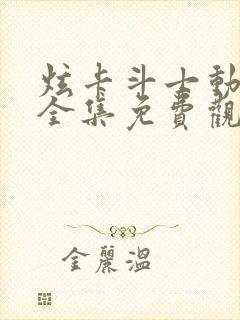 炫卡斗士動
全集免費觀
金麗溫